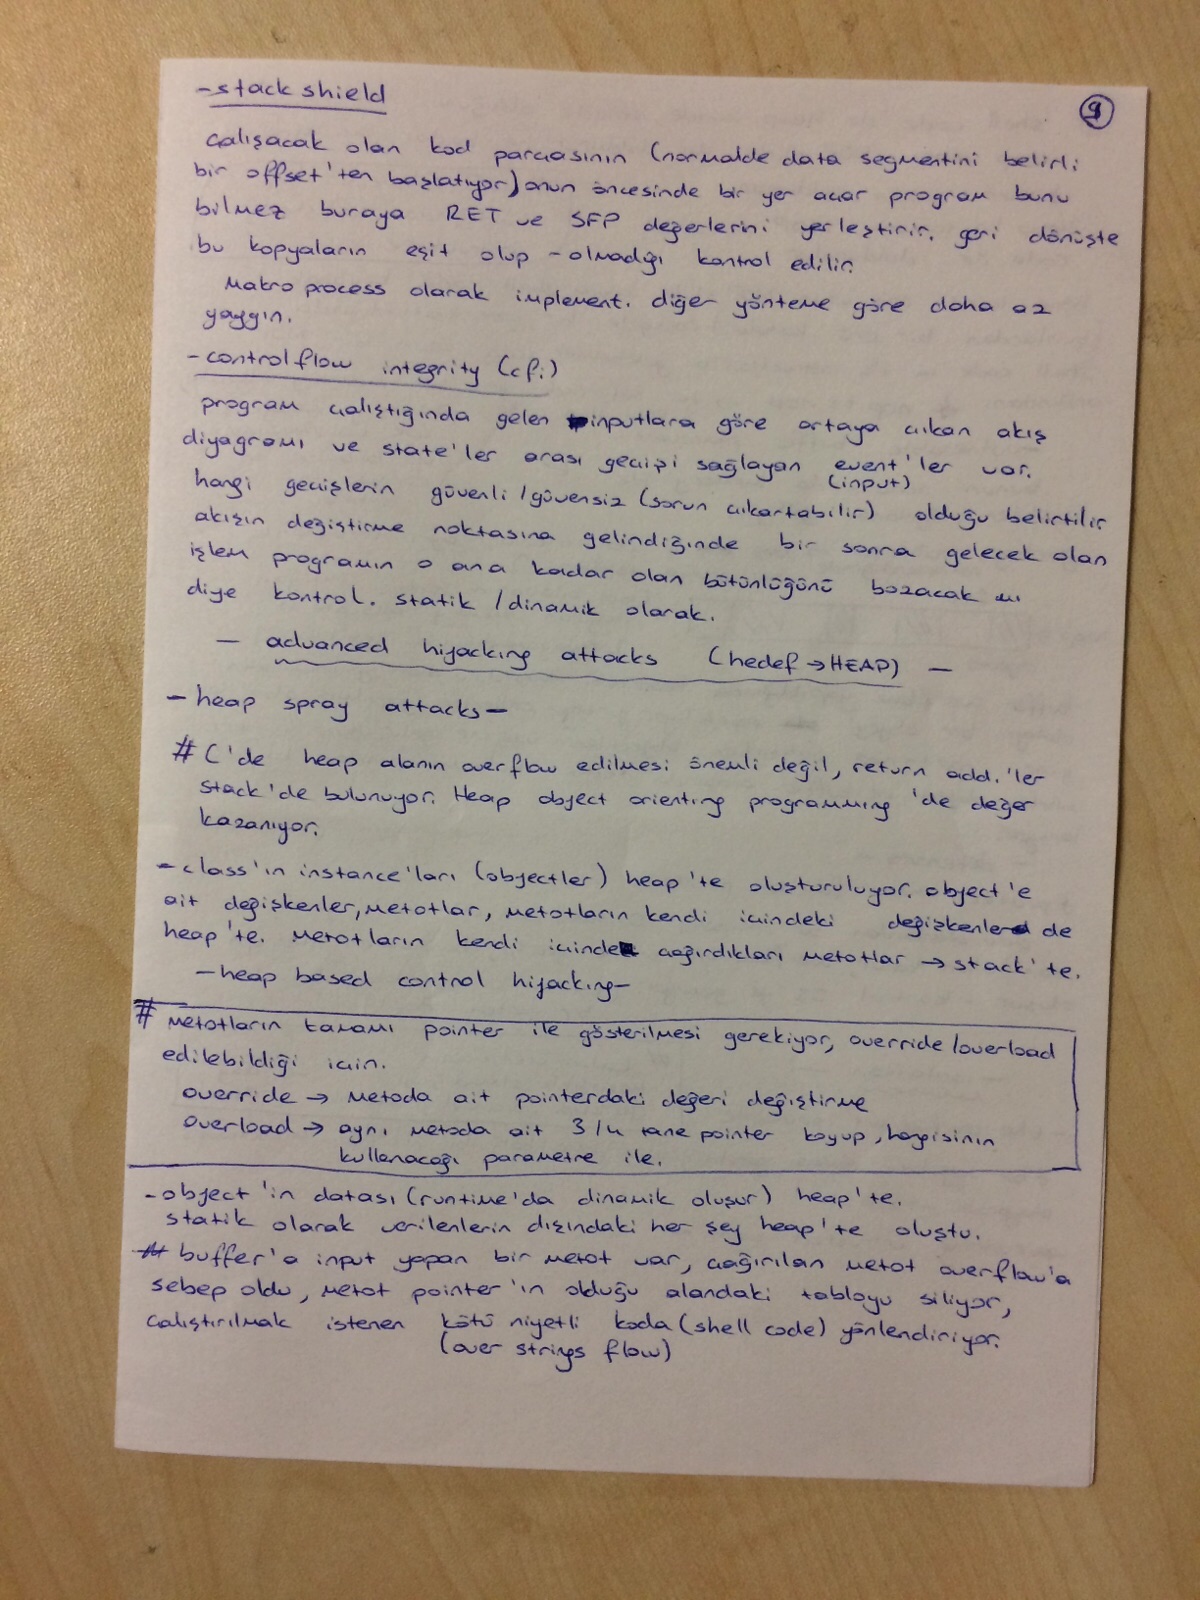 - stack shield
9
çalışacak olan kod parçasının (normalde data segmentini belirli
bir offset'ten başlatıyor) onun öncesinde bir yer açar program bunu
bilmez buraya RET ve SFP değerlerini yerleştirir. geri dönüşte
bu kopyaların eşit olup - olmadığı kontrol edilir.
Makro process olarak implement. diğer yönteme göre daha az
yaygın.
- control flow integrity (cfi)
program çalıştığında gelen inputlara göre ortaya çıkan akış
diyagramı ve state'ler arası geçişi sağlayan event'ler var.
(input)
hangi geçişlerin güvenli / güvensiz (sorun çıkartabilir) olduğu belirtilir
akışın değiştirme noktasına gelindiğinde bir sonra gelecek olan
işlem programın o ana kadar olan bütünlüğünü bozacak mı
diye kontrol. statik / dinamik olarak.
— advanced hijacking attacks (hedef → HEAP) —
- heap spray attacks -
# C'de heap alanın overflow edilmesi önemli değil, return add.'ler
stack'de bulunuyor. Heap object orienting programming 'de değer
kazanıyor.
- class'ın instance'ları (objectler) heap'te oluşturuluyor. object'e
ait değişkenler, metotlar, metotların kendi içindeki değişkenler de
heap'te. metotların kendi içinde çağırdıkları metotlar → stack'te.
- heap based control hijacking -
# metotların tamamı pointer ile gösterilmesi gerekiyor, override / overload
edilebildiği için.
override → metoda ait pointerdaki değeri değiştirme
overload → aynı metoda ait 3/4 tane pointer koyup, hangisinin
kullanacağı parametre ile.
- object'in datası (runtime'da dinamik oluşur) heap'te.
statik olarak verilenlerin dışındaki her şey heap'te oluştu.
# buffer'a input yapan bir metot var, çağırılan metot overflow'a
sebep oldu, metot pointer'ın olduğu alandaki tabloyu siliyor,
çalıştırılmak istenen kötü niyetli koda (shell code) yönlendiriyor.
(over strings flow)